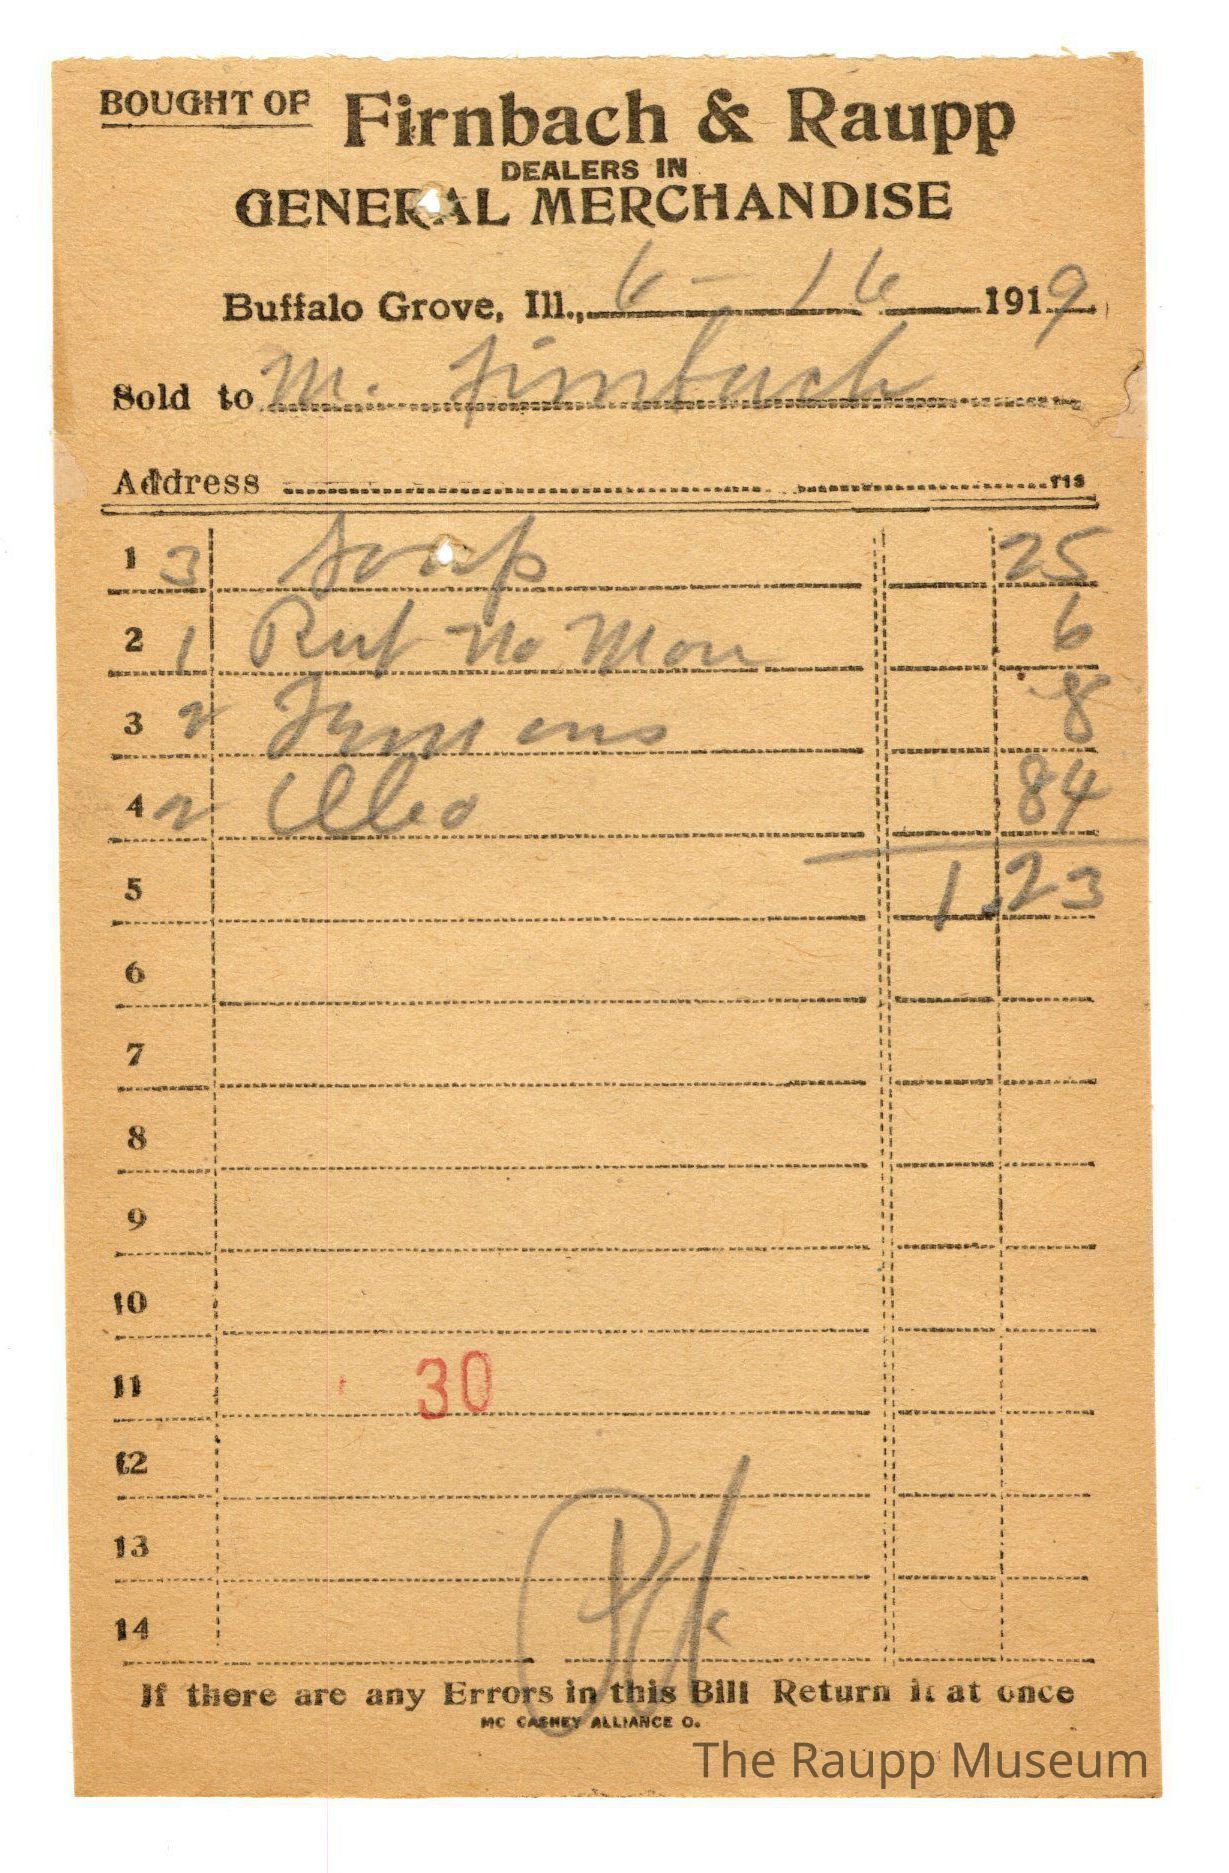 BOUGHT OF Firnbach & Raupp
DEALERS IN
GENERAL MERCHANDISE
Buffalo Grove, Ill., 6 - 16 1919
Sold to M. Firnbach
Address
1 3 Soap 25
2 1 Rub No More 6
3 2 8
4 2 Oleo 84
5 1.23
6
7
8
9
10
11 30
12
13
14 Pd
If there are any Errors in this Bill Return it at once
MC CASKEY ALLIANCE O.
The Raupp Museum